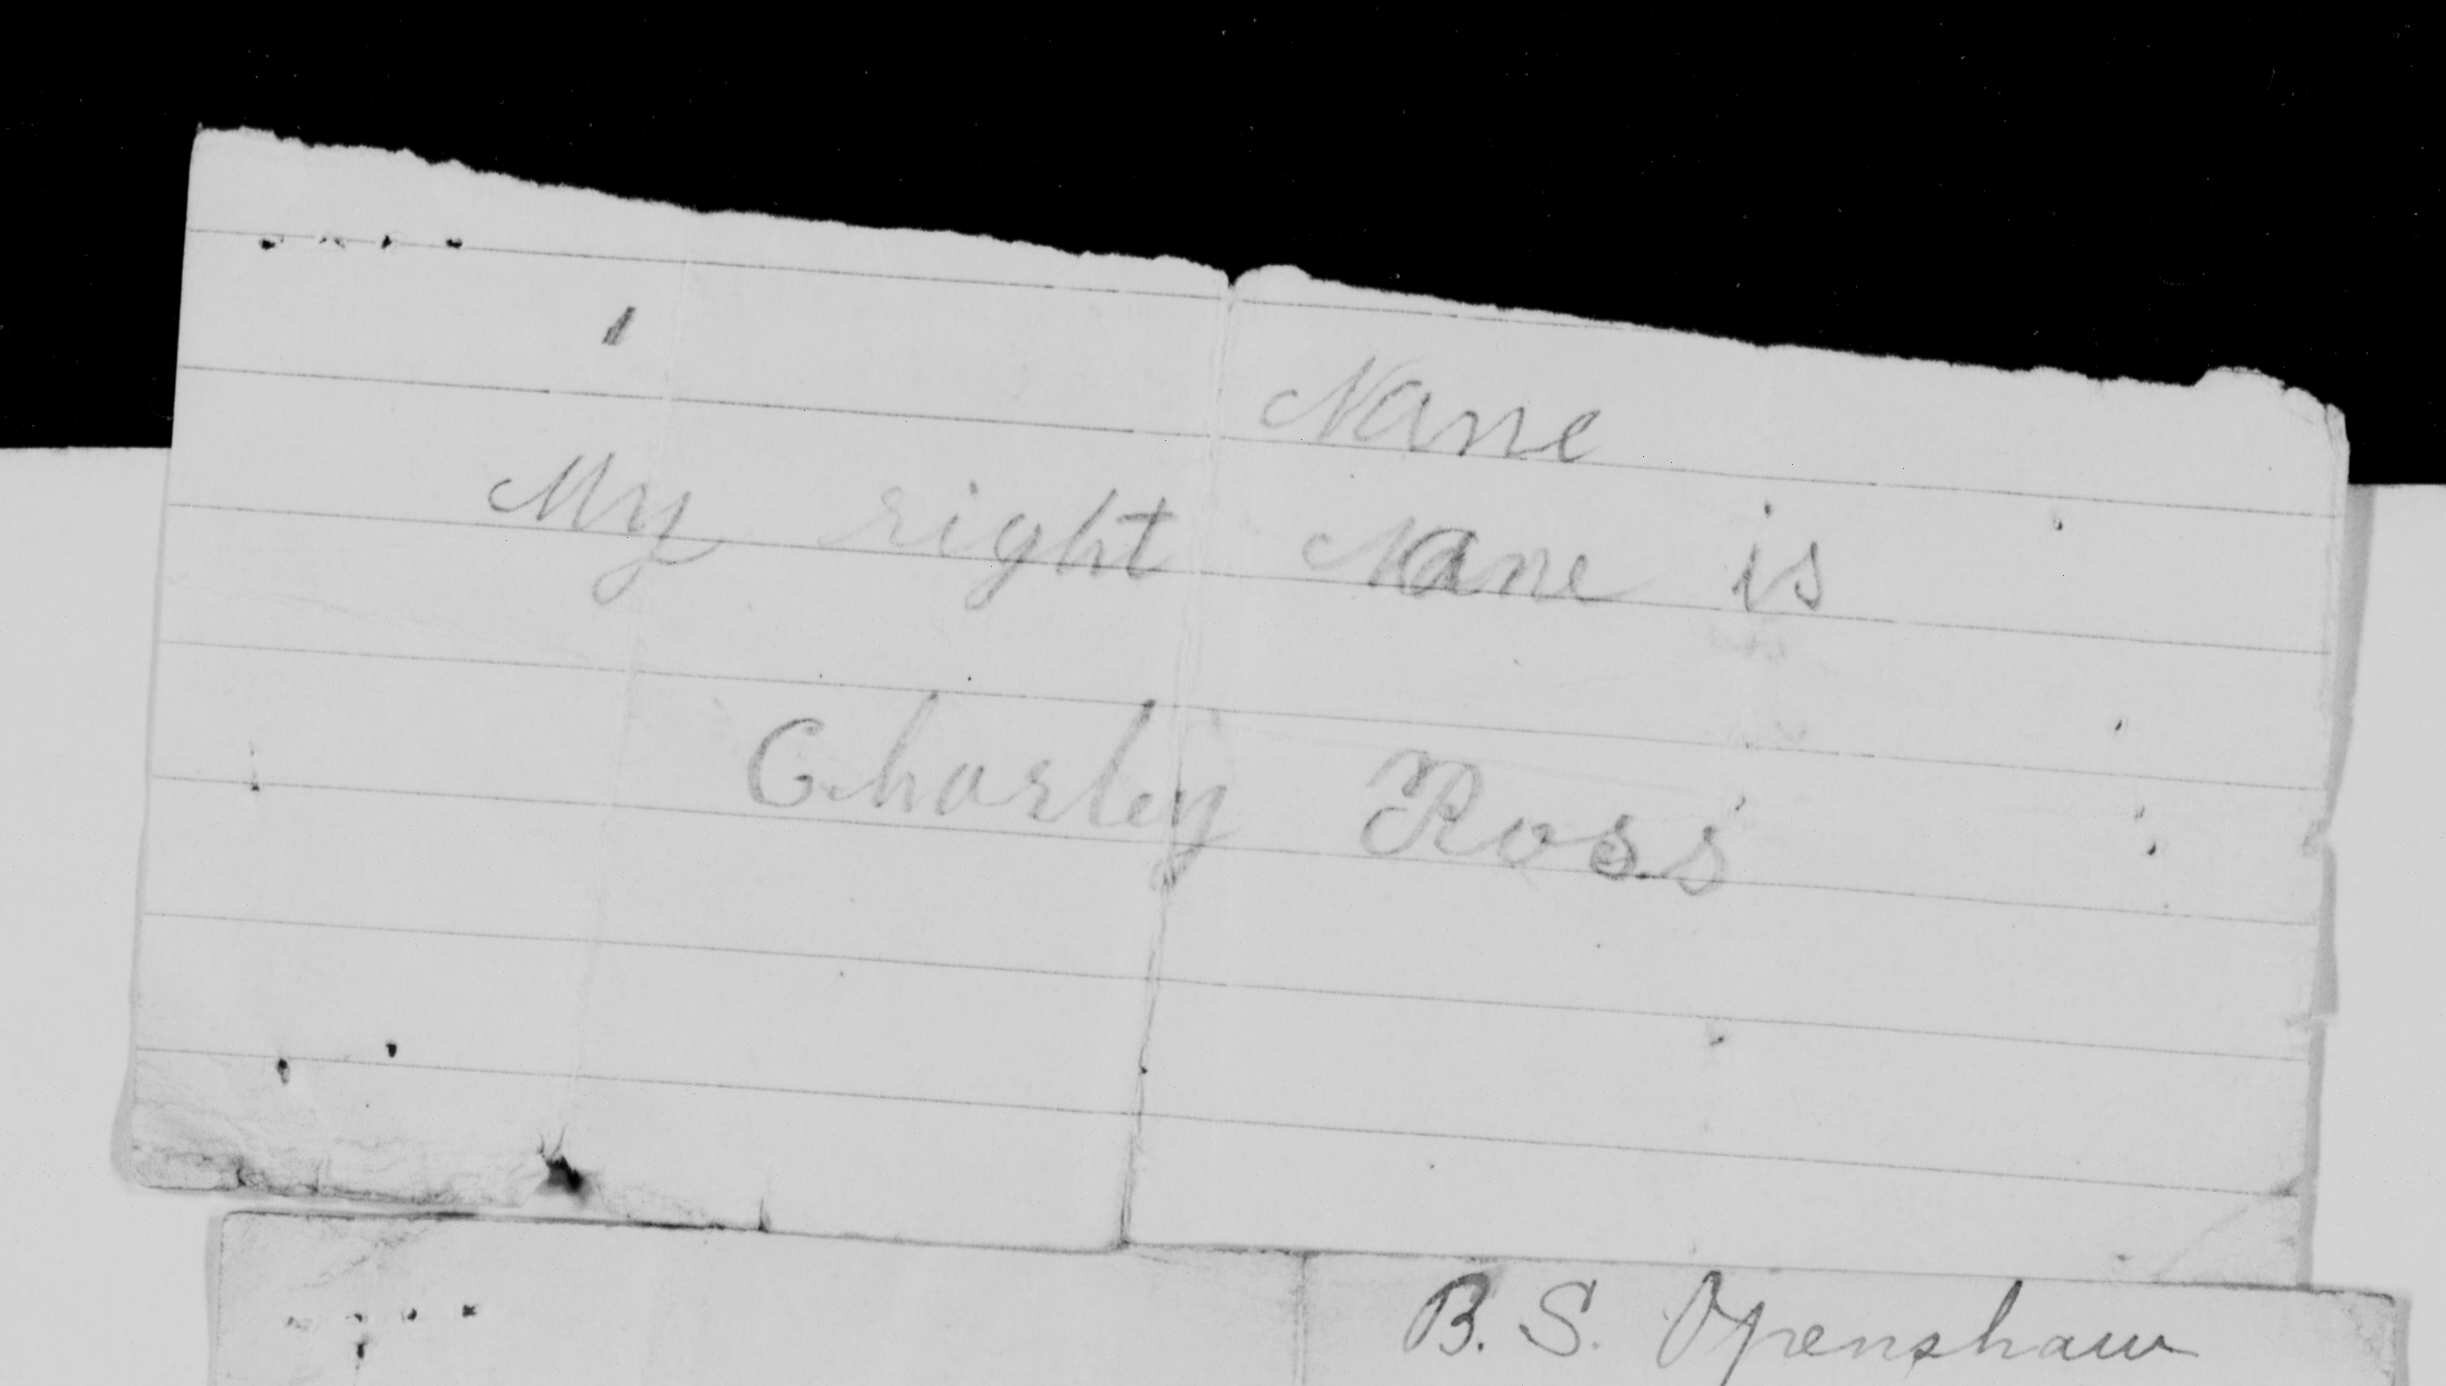 Nane
My right Nane is
Charley Ross
B. S. Openshaw